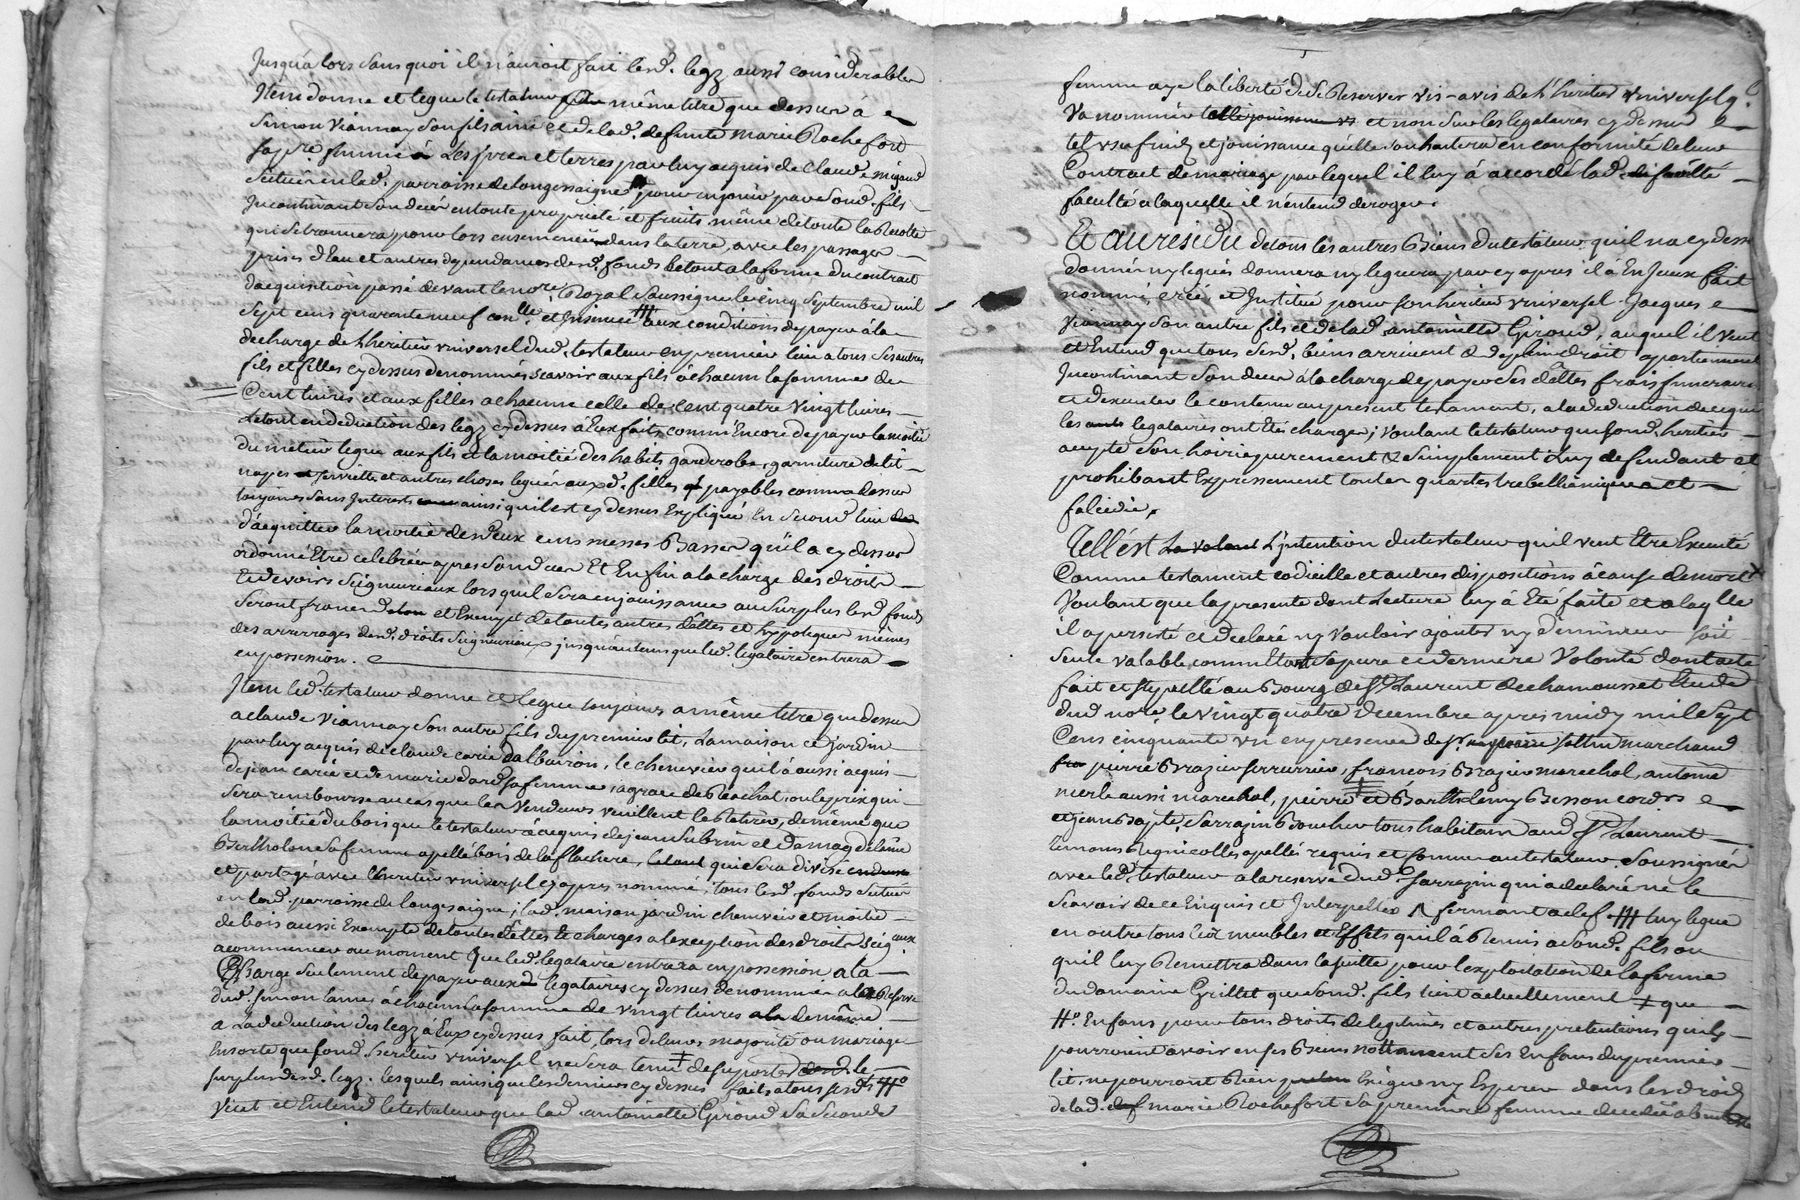 Jusqua lors sans quoi il n'auroit fait lesd. legz aussi considerables
Item donne et legue le testateur même titre que dessus à
Simon Viannay son fils ainé et de lad. defunte marie Rochefort
sa pre. femme les prez et terres par luy acquis de Claude migaud
scitués en lad. parroisse de longessaigne pour en jouir par sond. fils
Incontinant son decés en toute propriété et fruits même de toute la Recolte
qui se trouvera pour lors ensemencée dans la terre, avec les passages
prises d'Eau et autres dependances desd. fonds le tout a la forme du contrat
dacquisition passé devant le nore. Royal soussigne le cinq septembre mil
sept cens quarante neuf conlle. et insinué aux conditions de payer à la
decharge de Lheritier universel dud. testateur en premier lieu a tous ses autres
fils et filles cy dessus denommes scavoir aux fils à chacun la somme de
Cent livres et aux filles a chacune celle de Cent quatre vingt livres
le tout en deduction des legz cy dessus à Eux faits, comm'Encore de payer la moitié
du métier legué aux fils et la moitié des habits garderobes, garniture de lit
napes serviettes et autres choses leguées auxd. filles payables comme dessus
toujours sans Interests ainsi quil est cy dessus Expliqué En second lieu
d'acquitter la moitié des deux cens messes Basses qu'il a cy dessus
ordonné Etre celebrées apres son decés Et Enfin a la charge des droits
et devoirs seigneuriaux lors quil sera en jouissance au surplus lesd. fonds
seront francs et Exempt de toutes autres dettes et hypoteques mêmes
des arrerages desd. droits seigneuriaux jusquau tems que led. legataire entrera
en possession.
Item led. testateur donne et legue toujours a même titre que dessus
a claude Viannay son autre fils du premier lit, la maison et jardin
par luy acquis de claude carie dalbairon, le chenevier quil à aussi acquis
de jean carie et de marie dard sa femme, a grace de Reachat, ou le prix qui
sera remboursé au cas que les Vendeurs veuillent le Retirer, de même que
la moitié du bois que le testateur à acquis de jean subrin et de magdelaine
Bertholon sa femme apellé bois de la flachere, le tout qui sera divisé
et partagé avec l'heritier universel cy apres nommé, tous lesd. fonds scitués
en lad. parroisse de longesaigne; lad. maison jardin chenevier et moitié
de bois aussi Exempts de toutes dettes et charges a lexception des droits seig.aux
a commencer au moment que led. legataire entrera en possession a la
Charge seulement de payer aux legataires cy dessus denommés a la Reserve
dud. simon lainé, à chacun la somme de vingt livres de même
a la deduction des legz à Eux cy dessus fait, lors de leurs majorité ou mariage
En sorte que sond. heritier universel ne sera tenu de suporter le
surplus desd. legz. lesquels ainsi que les derniers cy dessus faits a tous sesd.
Veut et Entend le testateur que lad. antoinette Giroud sa seconde
femme aye la liberté de se Reserver vis-avis de l'heritier universel q.
Va nommer et non sur les legataires cy dessus
tel usufruit et jouissance qu'elle souhaitera en conformité de leur
Contract de mariage par lequel il luy à accordé lad.
faculté a laquelle il n'entend deroger.
Et au residu de tous les autres Biens du testateur quil na cy dessus
donnés ny legués donnera ny leguera par cy apres il à En Iceux fait
nommé, créé, et Institué pour son heritier universel Jacques
Viannay son autre fils et de lad. antoinette Giroud, auquel il veut
et Entend que tous sesd. biens arrivent & de plein droit apartiennent
Incontinant son decés à la charge de payer ses dettes frais funeraires
et d'executer le contenu au present testament, a la deduction de ce que
les legataires ont Eté chargés; voulant le testateur que sond. heritier
accepte son hoirie purement & simplement luy defendant et
prohibant Expressement toutes quartes trebellianiques et
falcidie.
Tell'est L'intention du testateur qu'il veut Etre Executé
Comme testament codicille et autres dispositions à cause de mort
Voulant que la presente dont Lecture luy à Eté faite et a laqlle
il a persisté et declaré ny vouloir ajouter ny diminuer soit
seule valable comm'Etant sa pure et derniere Volonté dont acte
fait et stypullé au Bourg de St. Laurent de chamousset Etude
dud. nore. le vingt quatre decembre apres midy mil sept
Cens cinquante un en presence de sr. marchand
pierre Brazier serrurier, francois Brazier marechal, antoine
merle aussi marechal, pierre et Barthelemy Besson cordrs
et jean Bapte. sarrazin Boucher tous habitans aud. St. Laurent
temoins Regnicolles apellés requis et connus au testateur soussignés
avec led. testateur a la reserve dud. sarrazin qui a declaré ne le
scavoir de ce Enquis et Interpellez fermant a clef luy legue
en outre tous les meubles et Effets quil à Remis a sond. fils ou
qu'il luy Remettra dans la suitte pour l'exploitation de la ferme
du domaine Grillet que sond. fils tient actuellement que
Enfans pour tous droits de legitimes et autres pretentions quils
pourroient avoir en ses Biens nottament ses Enfans du premier
lit, ne pourront Rien Exiger ny Esperer dans les droits
de lad. marie Rochefort sa premiere femme decedée